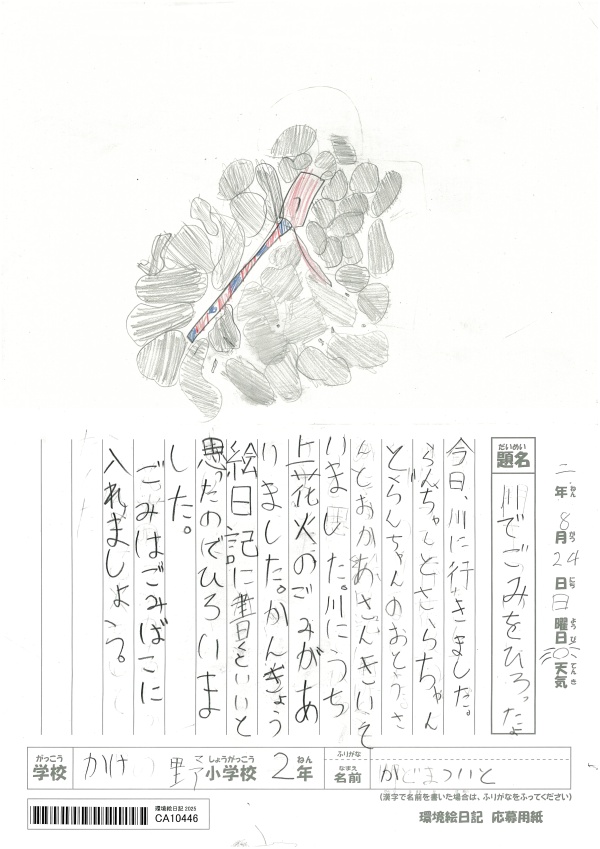 二年ねん8月がつ24日にち日曜日ようび天気てんき
だいめい
題名
川でごみをひろったよ
今日、川に行きました。
らんちゃんとさらちゃん
とらんちゃんのおとうさ
んとおかあさん
いました。川にうち
上花火のごみがあ
りました。かんきょう
絵日記に書くといいと
思ったのでひろいま
した。
ごみはごみばこに
入れましょう。
がっこう
学校
小学校 しょうがっこう
2年 ねん
ふりがな
なまえ
名前
かどまついと
(漢字で名前を書いた場合は、ふりがなをふってください)
環境絵日記 2025
CA10446
環境絵日記 応募用紙